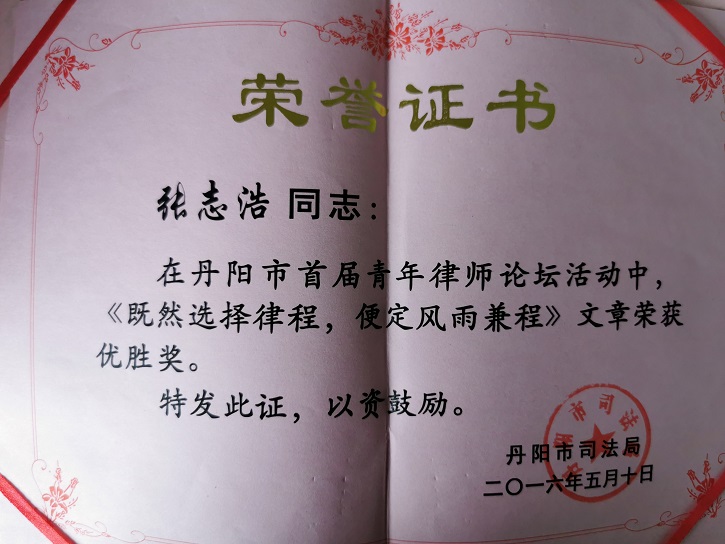 荣誉证书
张志浩 同志：
在丹阳市首届青年律师论坛活动中，
《既然选择律程，便定风雨兼程》文章荣获
优胜奖。
特发此证，以资鼓励。
丹阳市司法局
二〇一六年五月十日
丹阳市司法局